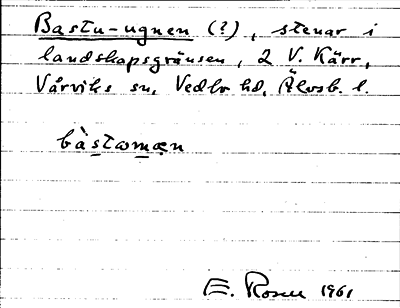 Bastu-ugnen (?), stenar i
landskapsgränsen, 2 V. Kärr,
Vårviks sn, Vedbo hd, Älvsb. l.
bàstωmæn
E. Rosen 1961